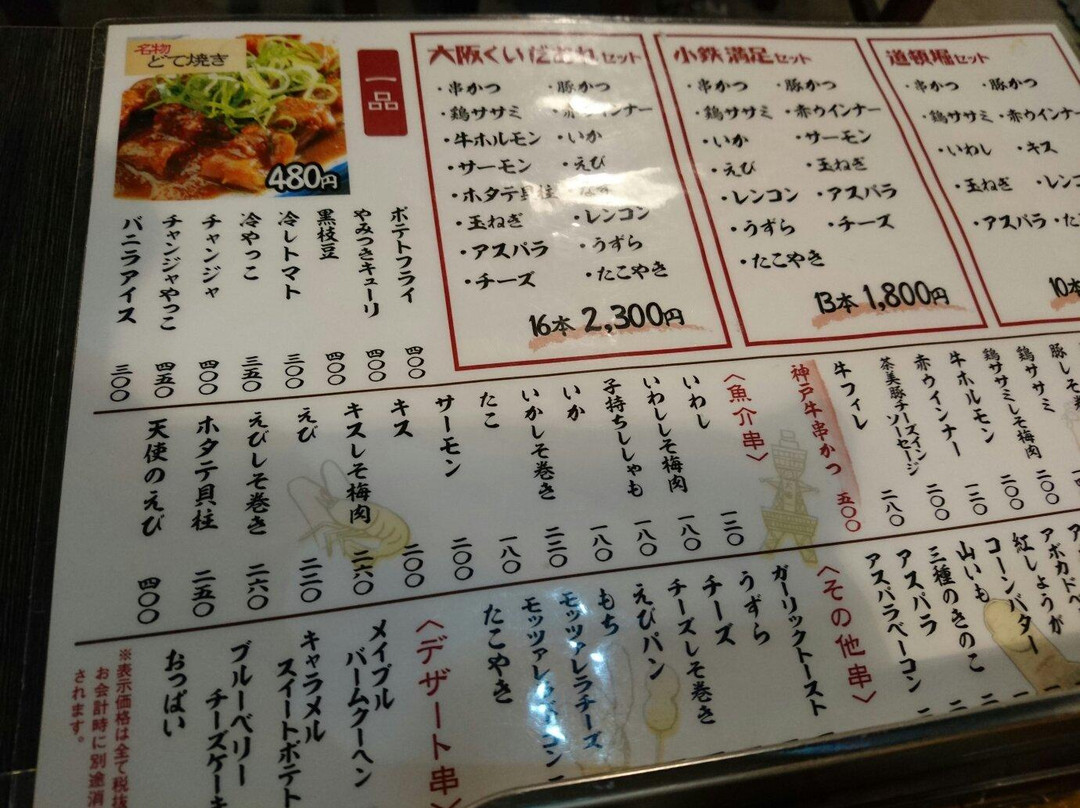 名物
どて焼き
480円
一品
ポテトフライ 四〇〇
やみつきキューリ 四〇〇
黒枝豆 四〇〇
冷しトマト 三〇〇
冷やっこ 三五〇
チャンジャ 四〇〇
チャンジャやっこ 四五〇
バニラアイス 三〇〇
大阪くいだおれセット
・串かつ ・豚かつ
・鶏ササミ ・赤ウインナー
・牛ホルモン ・いか
・サーモン ・えび
・ホタテ貝柱
・玉ねぎ ・レンコン
・アスパラ ・うずら
・チーズ ・たこやき
16本 2,300円
小鉄満足セット
・串かつ ・豚かつ
・鶏ササミ ・赤ウインナー
・いか ・サーモン
・えび ・玉ねぎ
・レンコン ・アスパラ
・うずら ・チーズ
・たこやき
13本 1,800円
道頓堀セット
・串かつ ・豚かつ
・鶏ササミ ・赤ウインナー
・いわし ・キス
・玉ねぎ ・レンコ
・アスパラ ・た
10本
豚しそ
鶏ササミ 二〇〇
鶏ササミしそ梅肉 二〇〇
牛ホルモン 一二〇
赤ウインナー 二〇〇
茶美豚チーズイン
ソーセージ 二八〇
牛フィレ
神戸牛串かつ 五〇〇
〈魚介串〉
いわし 一二〇
いわししそ梅肉 一八〇
子持ちししゃも 一八〇
いか 一八〇
いかしそ巻き 二二〇
たこ 一八〇
サーモン 二〇〇
キス 二〇〇
キスしそ梅肉 二六〇
えび 二二〇
えびしそ巻き 二六〇
ホタテ貝柱 二五〇
天使のえび 四〇〇
アボカドベ
紅しょうが
コーンバター
山いも
三種のきのこ
アスパラ
アスパラベーコン
〈その他串〉
ガーリックトースト
うずら
チーズ
チーズしそ巻き
えびパン
もち
モッツァレラチーズ
たこやき
〈デザート串〉
メイプル
バームクーヘン
キャラメル
スイートポテト
ブルーベリー
チーズケーキ
おっぱい
※表示価格は全て税抜
お会計時に別途消
されます。